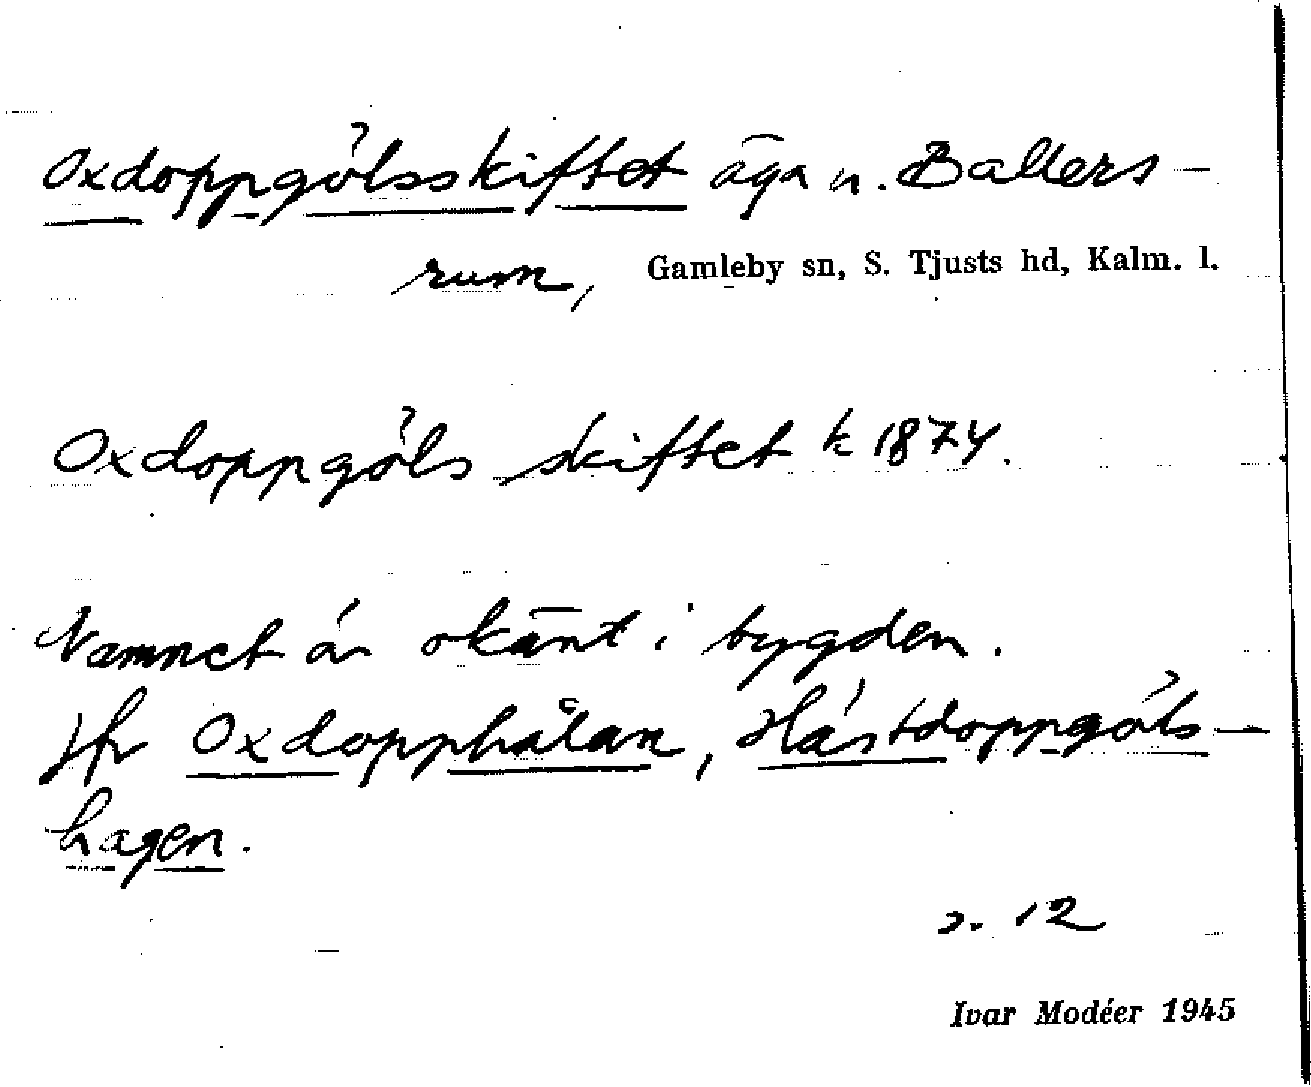 Oxdoppgölsskiftet äga n. Ballers-
rum, Gamleby sn, S. Tjusts hd, Kalm. l.
Oxdoppgöls skiftet k 1874.
Namnet är okänt i bygden.
Jfr Oxdopphålan, Hästdoppgöls-
hagen.
s. 12
Ivar Modéer 1945